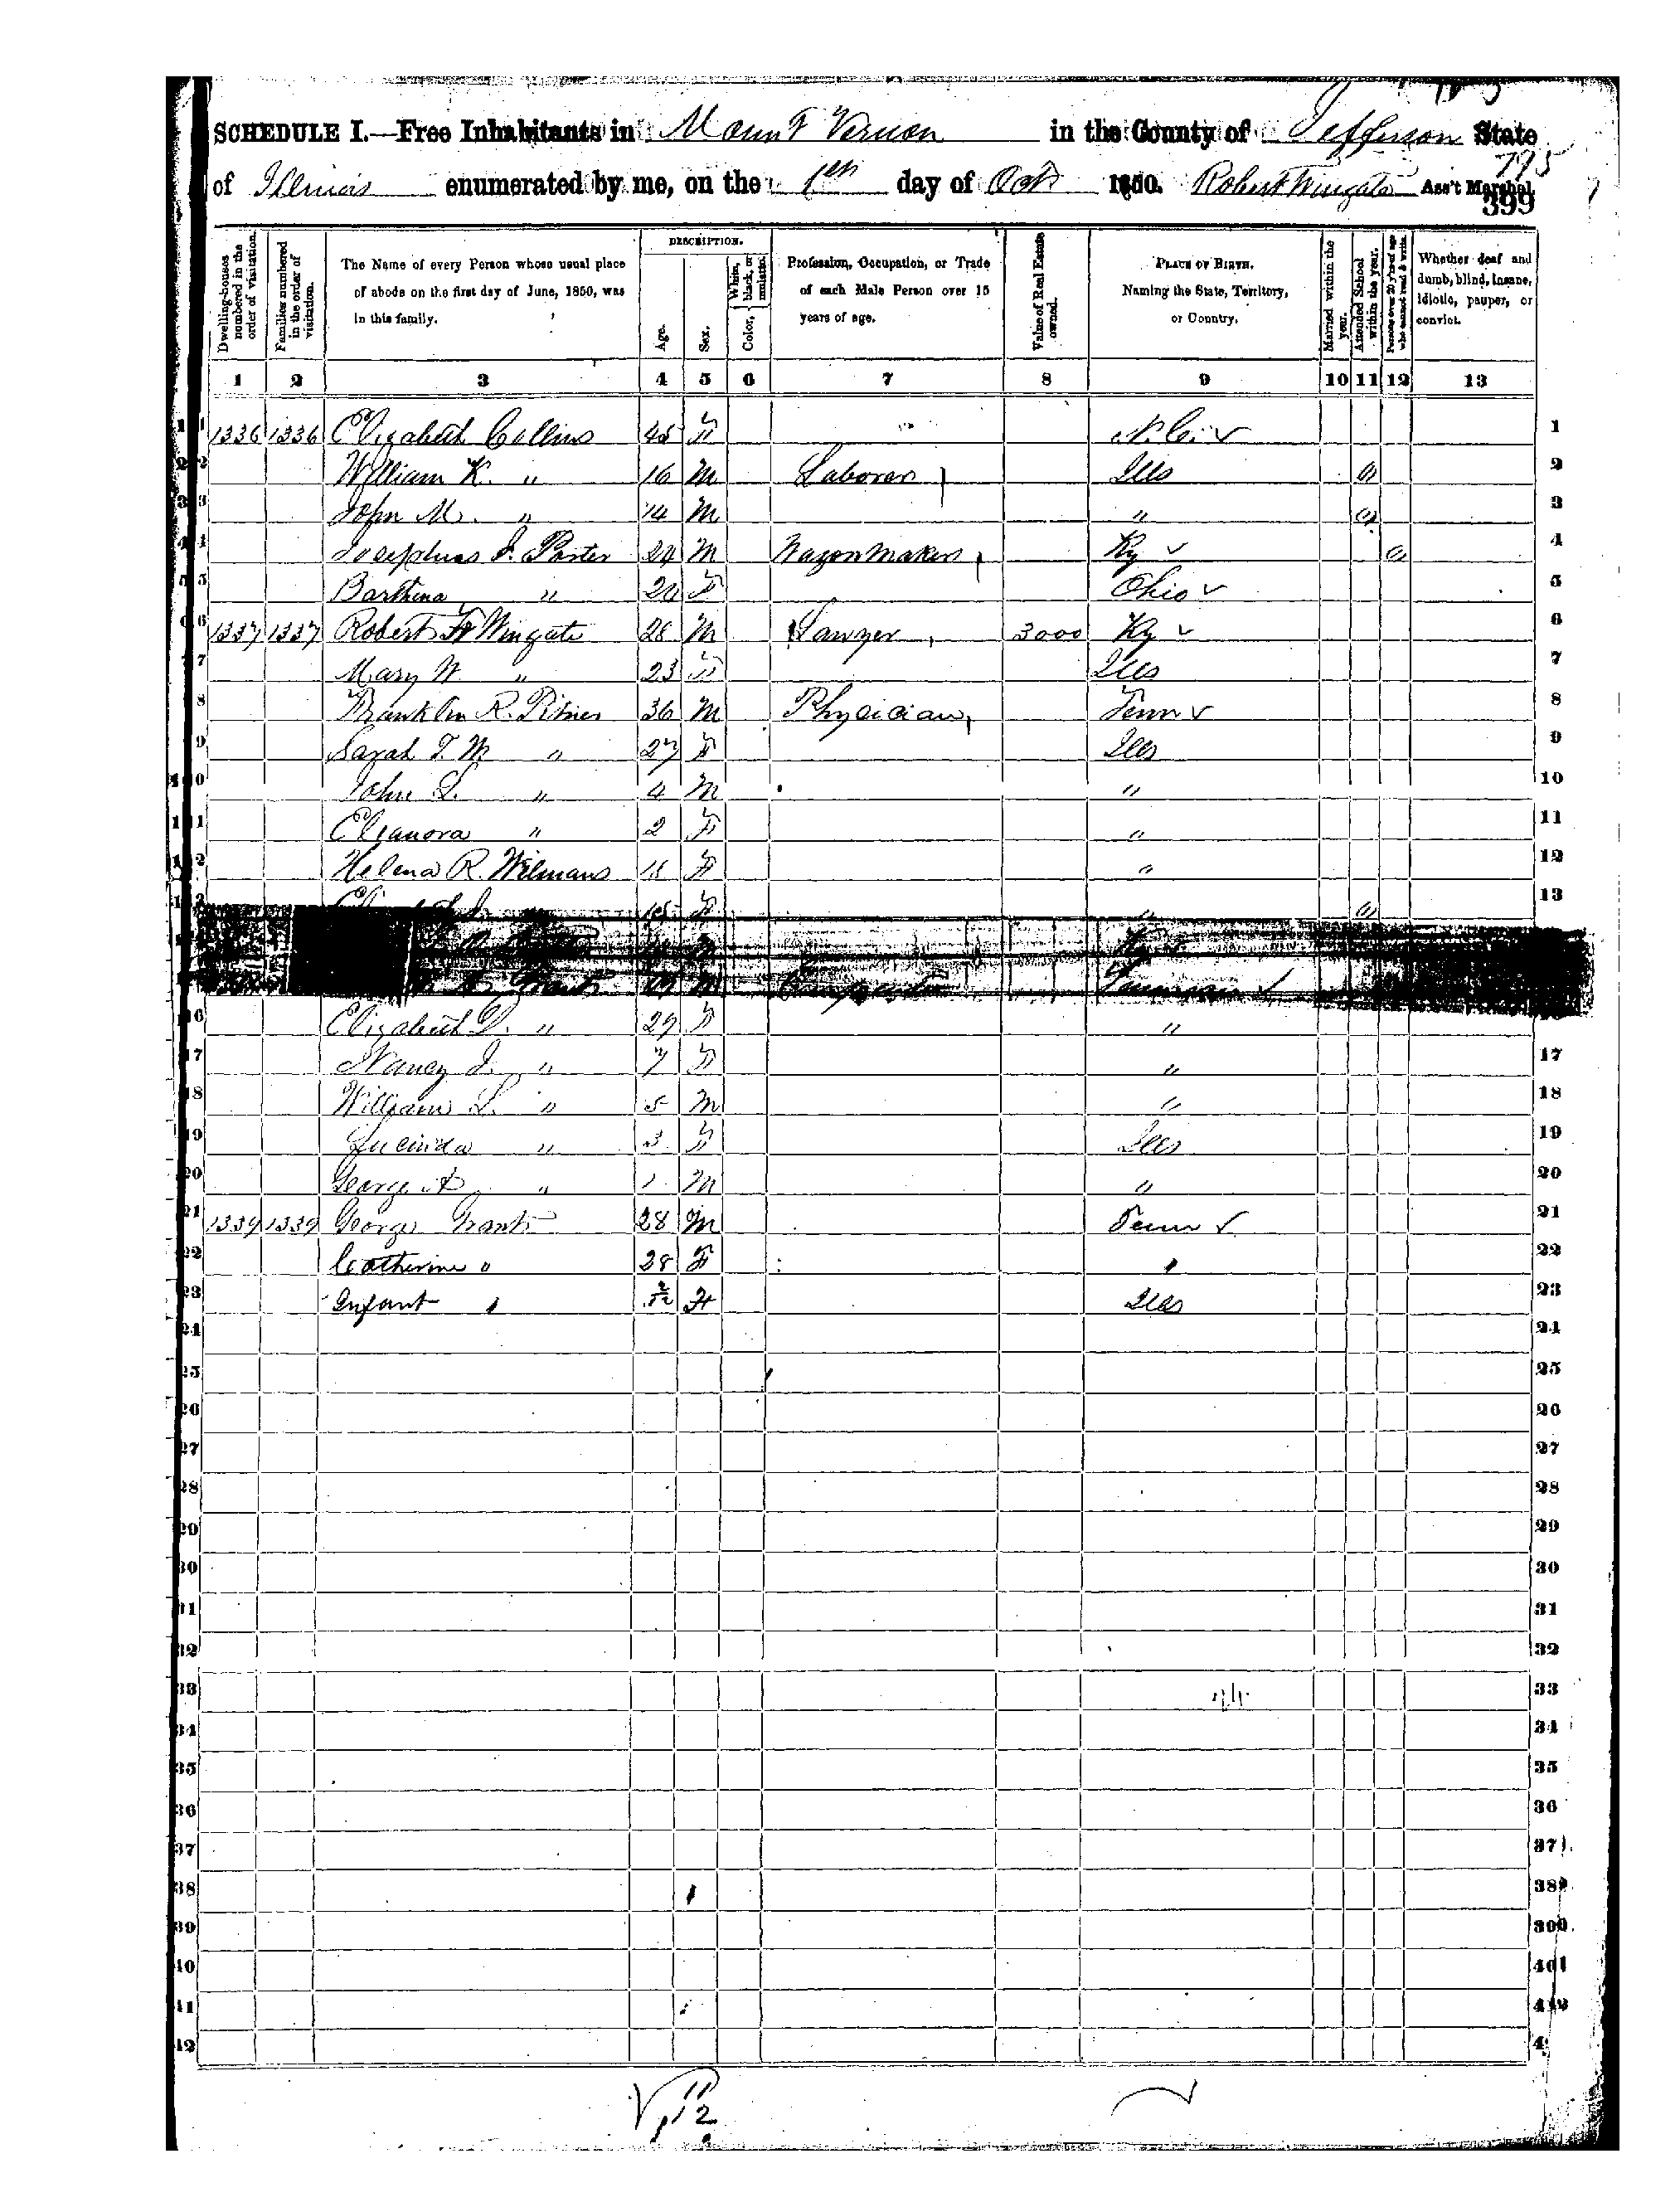 SCHEDULE I.—Free Inhabitants in Mount Vernon in the County of Jefferson State
795
of Illinois enumerated by me, on the 1th day of Oct 1850. Robert Wingate Ass't Marshal.
399
Dwelling-houses numbered in the order of visitation.
Families numbered in the order of visitation.
The Name of every Person whose usual place of abode on the first day of June, 1850, was in this family.
DESCRIPTION.
Age.
Sex.
Color, White, black, or mulatto.
Profession, Occupation, or Trade of each Male Person over 15 years of age.
Value of Real Estate owned.
PLACE OF BIRTH. Naming the State, Territory, or Country.
Married within the year.
Attended School within the year.
Persons over 20 y'rs of age who cannot read & write.
Whether deaf and dumb, blind, insane, idiotic, pauper, or convict.
1 2 3 4 5 6 7 8 9 10 11 12 13
1 1336 1336 Elizabeth Collins 45 F N.C. ✓ 1
2 William K. " 16 M Laborer Ills 1 2
3 John M. " 14 M " 1 3
4 Josephus J. Porter 24 M Wagon Maker Ky ✓ 1 4
5 Barthena " 20 F Ohio ✓ 5
6 1337 1337 Robert F Wingate 28 M Lawyer 3000 Ky ✓ 6
7 Mary W. " 23 F Ills 7
8 Franklin R. Pitner 36 M Physician Tenn ✓ 8
9 Sarah T. W. " 27 F Ills 9
10 John S. " 4 M " 10
11 Eleanora " 2 F " 11
12 Helena R. Wilmans 18 F " 12
13 15 F " 1 13
M
Grant M Carpenter ✓
16 Elizabeth D. " 29 F "
17 Nancy J. " 7 F " 17
18 William L. " 5 M " 18
19 Lucinda " 3 F Ills 19
20 George A " 1 M " 20
21 1339 1339 George Grant 28 M Tenn ✓ 21
22 Catherine " 28 F " 22
23 Infant " 2/12 F Ills 23
24 24
25 25
26 26
27 27
28 28
29 29
30 30
31 31
32 32
33 33
34 34
35 35
36 36
37 37
38 38
39 39
40 40
41 41
42 4
11
12